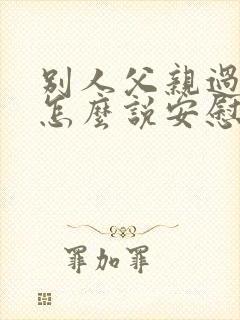 別人父親過
怎麼說安慰
罪加罪